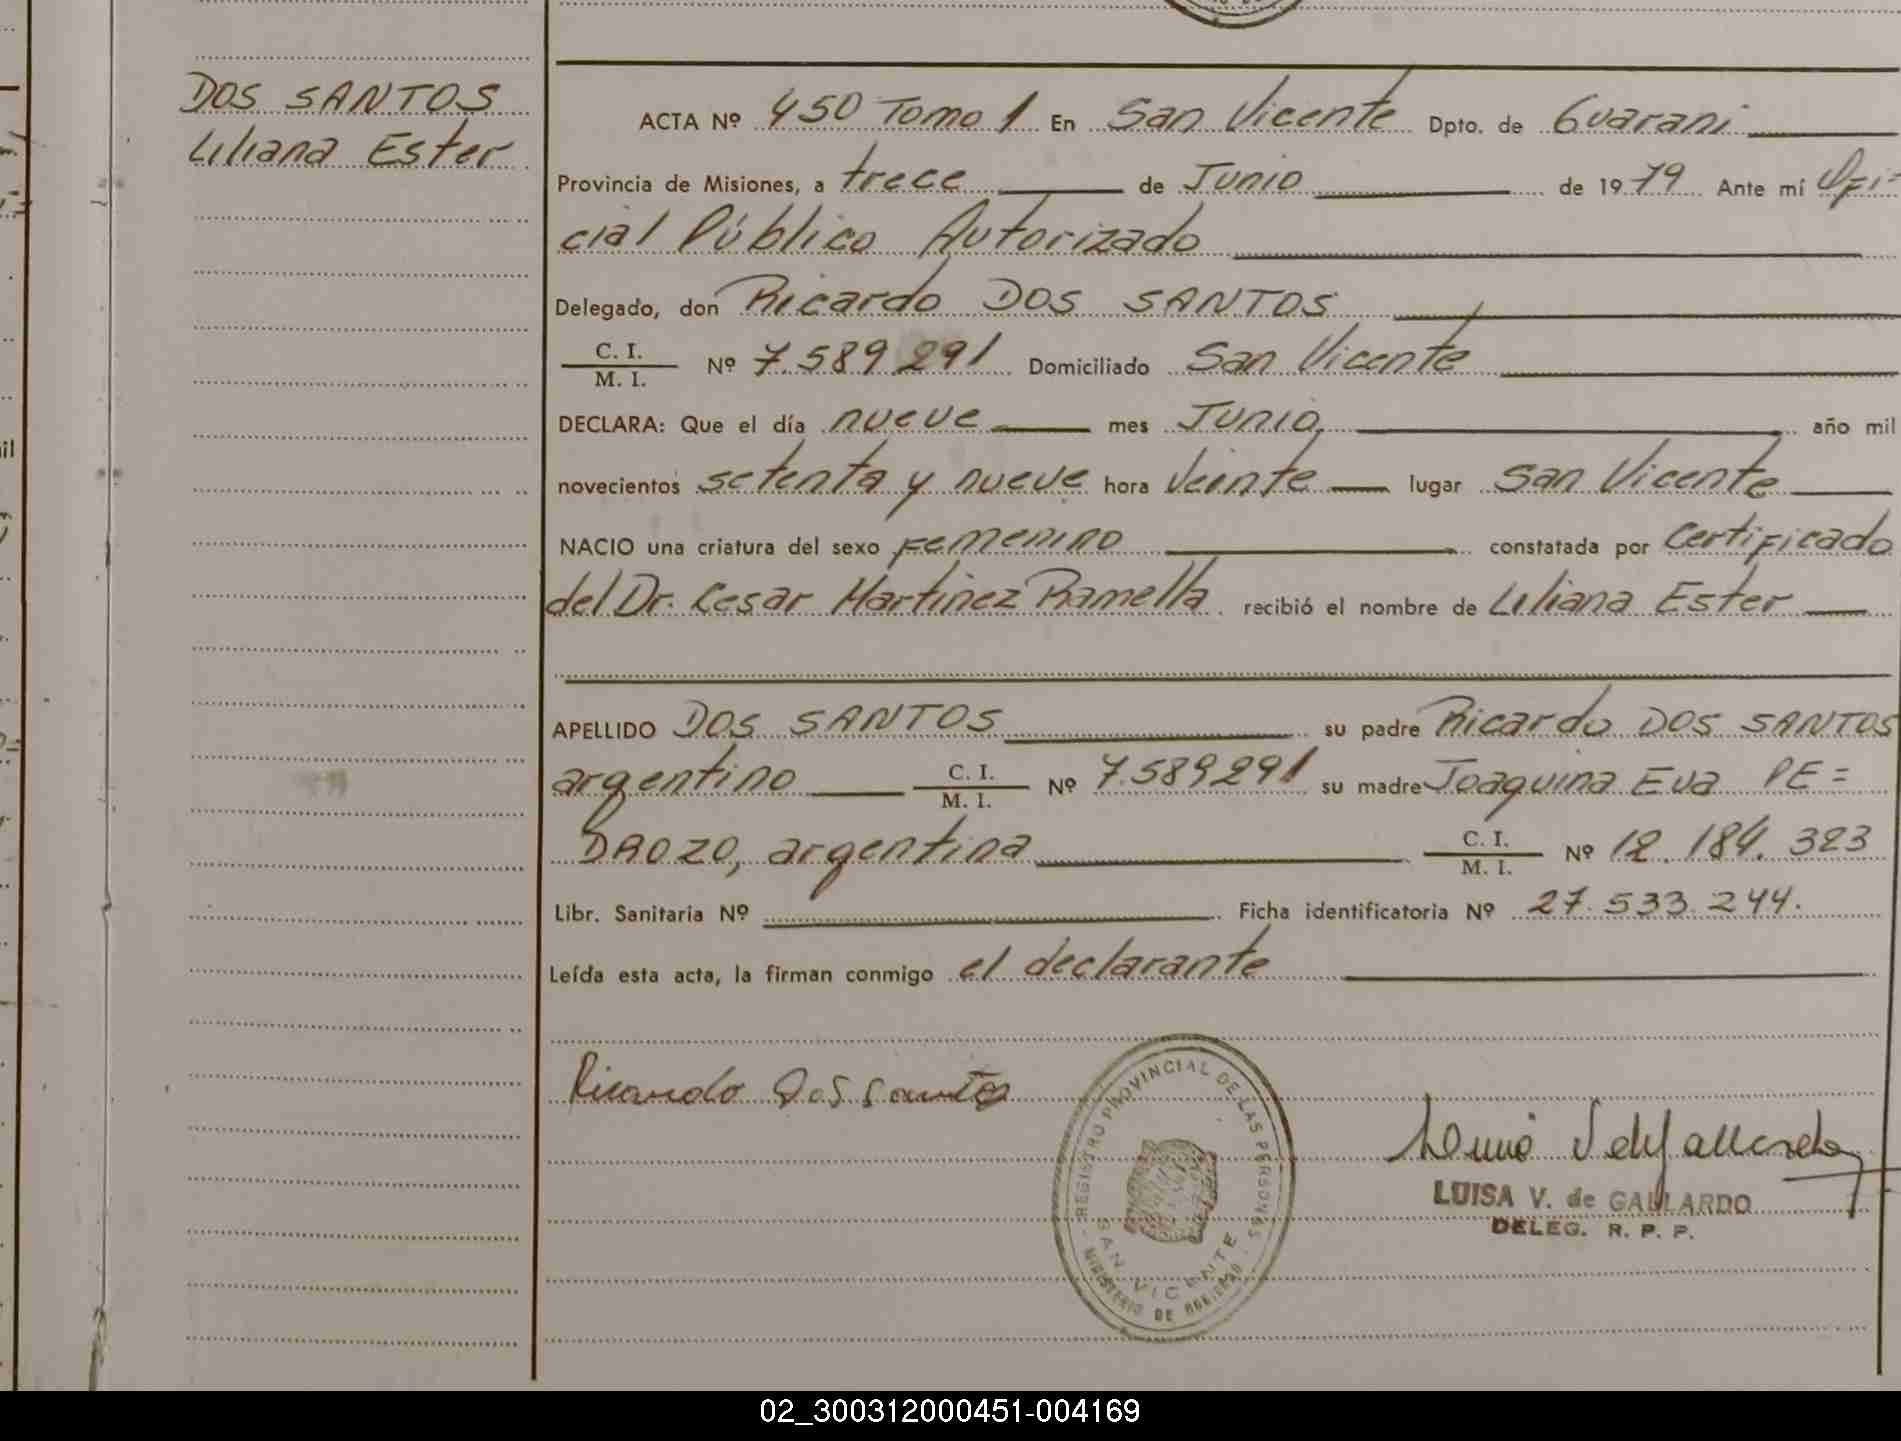 DOS SANTOS
Liliana Ester
ACTA Nº 450 Tomo 1 En San Vicente Dpto. de Guarani
Provincia de Misiones, a trece de Junio de 1979 Ante mí Ofi=
cial Público Autorizado
Delegado, don Ricardo DOS SANTOS
C. I.
M. I. Nº 7.589.291 Domiciliado San Vicente
DECLARA: Que el día nueve mes Junio, año mil
novecientos setenta y nueve hora veinte lugar San Vicente
NACIO una criatura del sexo femenino constatada por Certificado
del Dr. Cesar Martinez Ramella recibió el nombre de Liliana Ester
APELLIDO DOS SANTOS su padre Ricardo DOS SANTOS
argentino C. I. M. I. Nº 7.589291 su madre Joaquina Eva PE=
DROZO, argentina C. I. M. I. Nº 12.184.323
Libr. Sanitaria Nº Ficha identificatoria Nº 27.533.244.
Leída esta acta, la firman conmigo el declarante
Ricardo Dos santos
REGISTRO PROVINCIAL DE LAS PERSONAS
SAN VICENTE
MINISTERIO DE GOBIERNO
LUISA V. de GALLARDO
DELEG. R. P. P.
02_300312000451-004169